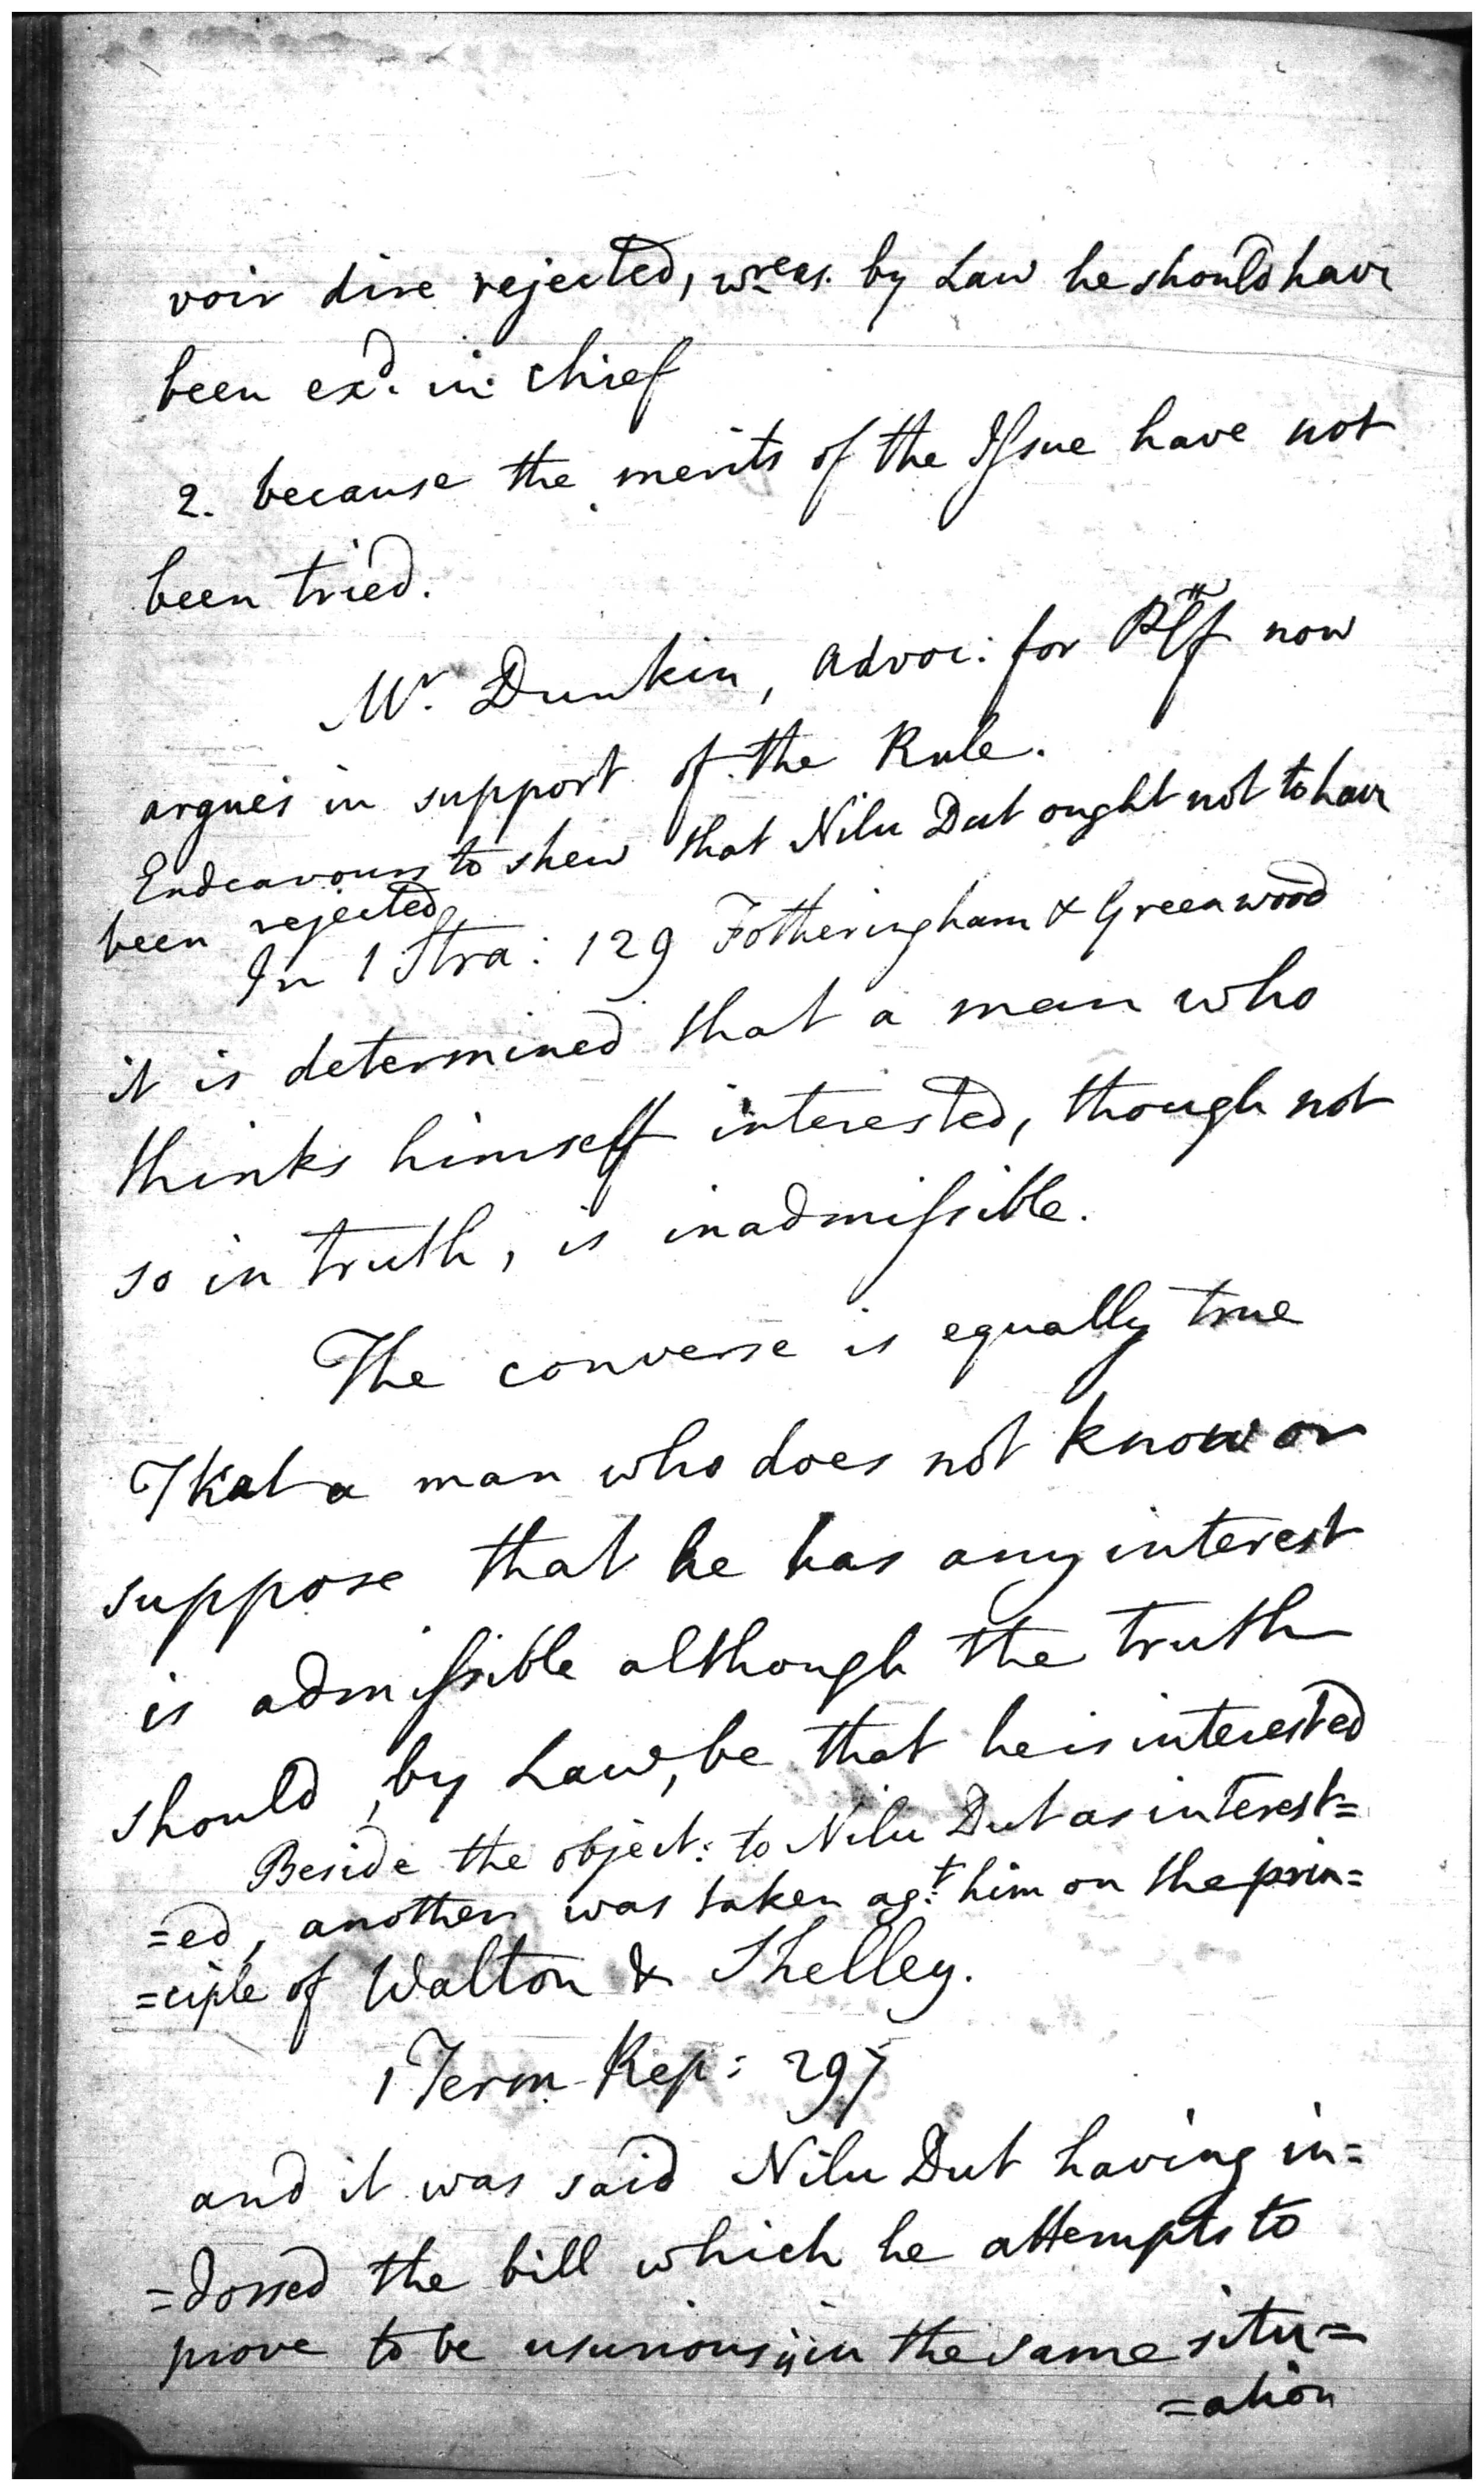 voir dire rejected, wreas. by Law he should have
been exd. in chief
2. because the merits of the Issue have not
been tried.
Mr. Dunkin, advoc: for Pltff now
argues in support of the Rule.
Endeavours to shew that Nilu Dut ought not to have
been rejected
In 1 Stra: 129 Fotheringham & Greenwood
it is determined that a man who
thinks himself interested, though not
so in truth, is inadmissible.
The converse is equally true
That a man who does not know or
suppose that he has any interest
is admissible although the truth
should, by Law, be that he is interested
Beside the object: to Nilu Dut as interest=
=ed, another was taken agt. him on the prin=
=ciple of Walton & Shelley.
1 Term Rep: 297
and it was said Nilu Dut having in=
=dorsed the bill which he attempts to
prove to be usurious, is in the same situ=
=ation